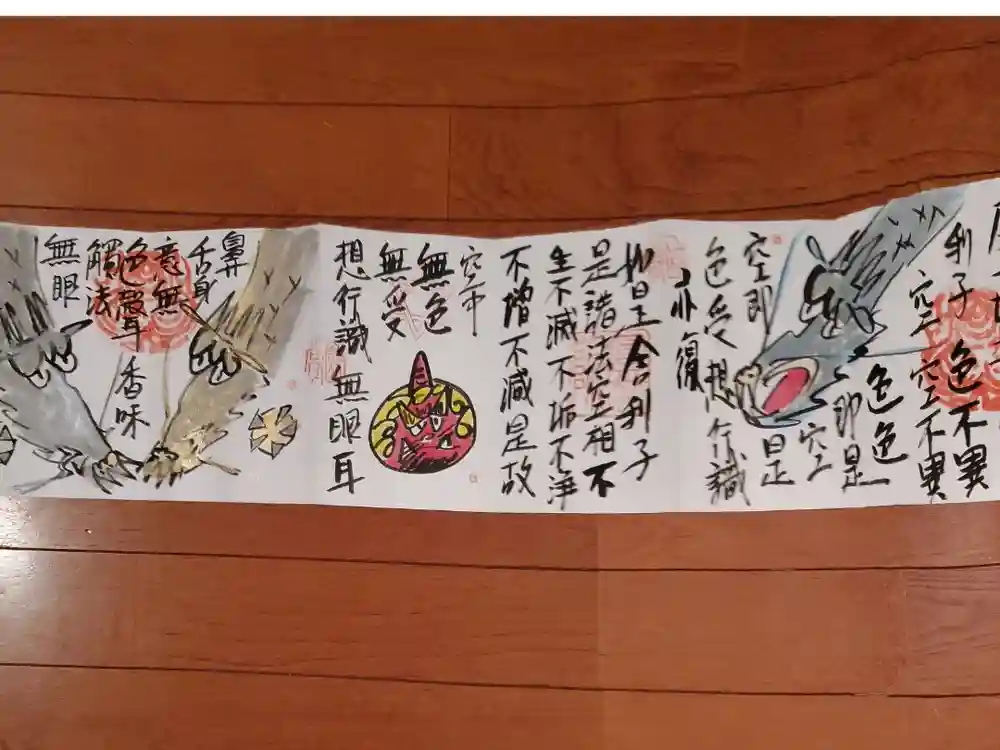 利子色不異
空空不異
色色
即是
空
空即
是
色受想行識
亦復
如是舍利子
是諸法空相不
生不滅不垢不淨
不増不減是故
空中
無色
無受
想行識無眼耳
鼻
舌身
意無
色聲
香味
觸法
無眼